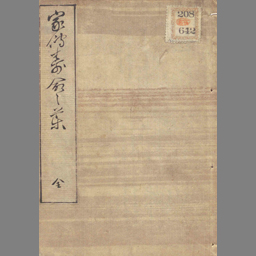 家傳壽命之藥
全
208
642